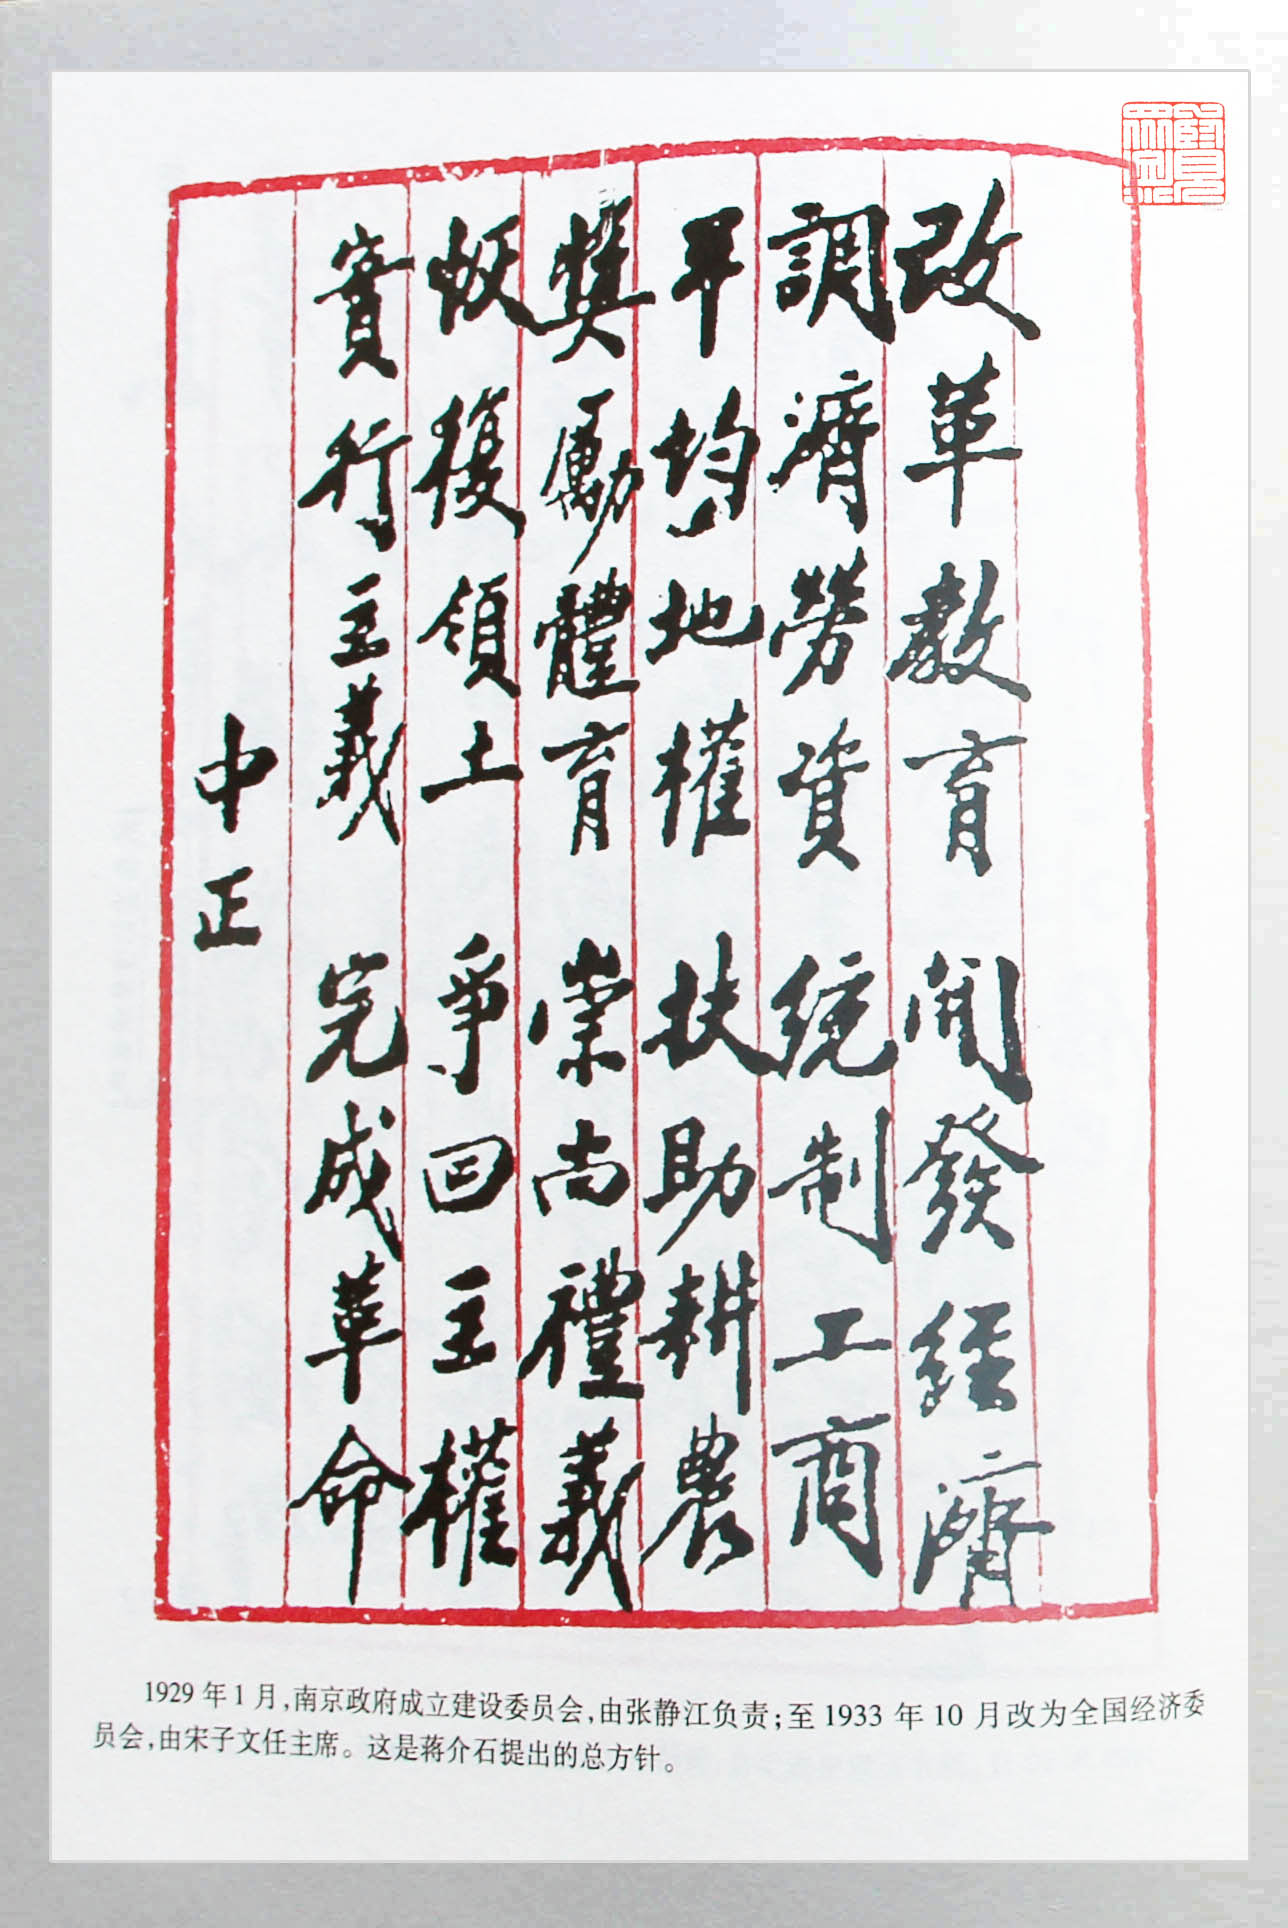 改革教育 開發經濟
調濟勞資 統制工商
平均地權 扶助耕農
獎勵體育 崇尚禮義
恢復領土 爭回主權
實行主義 完成革命
中正
1929年1月,南京政府成立建设委员会,由张静江负责;至1933年10月改为全国经济委
员会,由宋子文任主席。这是蒋介石提出的总方针。